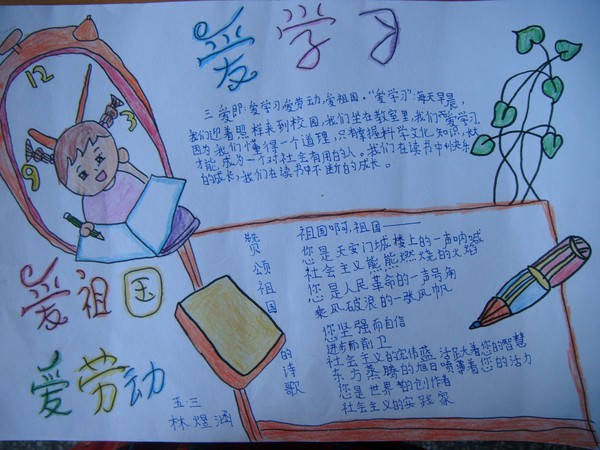 爱学习
三爱即:爱学习,爱劳动,爱祖国。“爱学习”:每天早晨,
我们迎着照样来到校园,我们坐在教室里,我们爱学习
因为我们懂得一个道理,只有掌握科学文化知识,
才能成为一个对社会有用的人。我们在读书中快乐
的成长,我们在读书中不断的成长。
12
3
9
6
爱祖国
爱劳动
五三
林煜涵
赞颂祖国的诗歌
祖国啊,祖国——
您是天安门城楼上的一声呐喊
社会主义熊熊燃烧的火焰
您是人民革命的一声号角
乘风破浪的一张风帆
您坚强而自信
进步而前卫
社会主义的宏伟蓝 活跃着您的智慧
东方蒸腾的旭日喷薄着您的活力
您是世界的创作者
社会主义的实践家